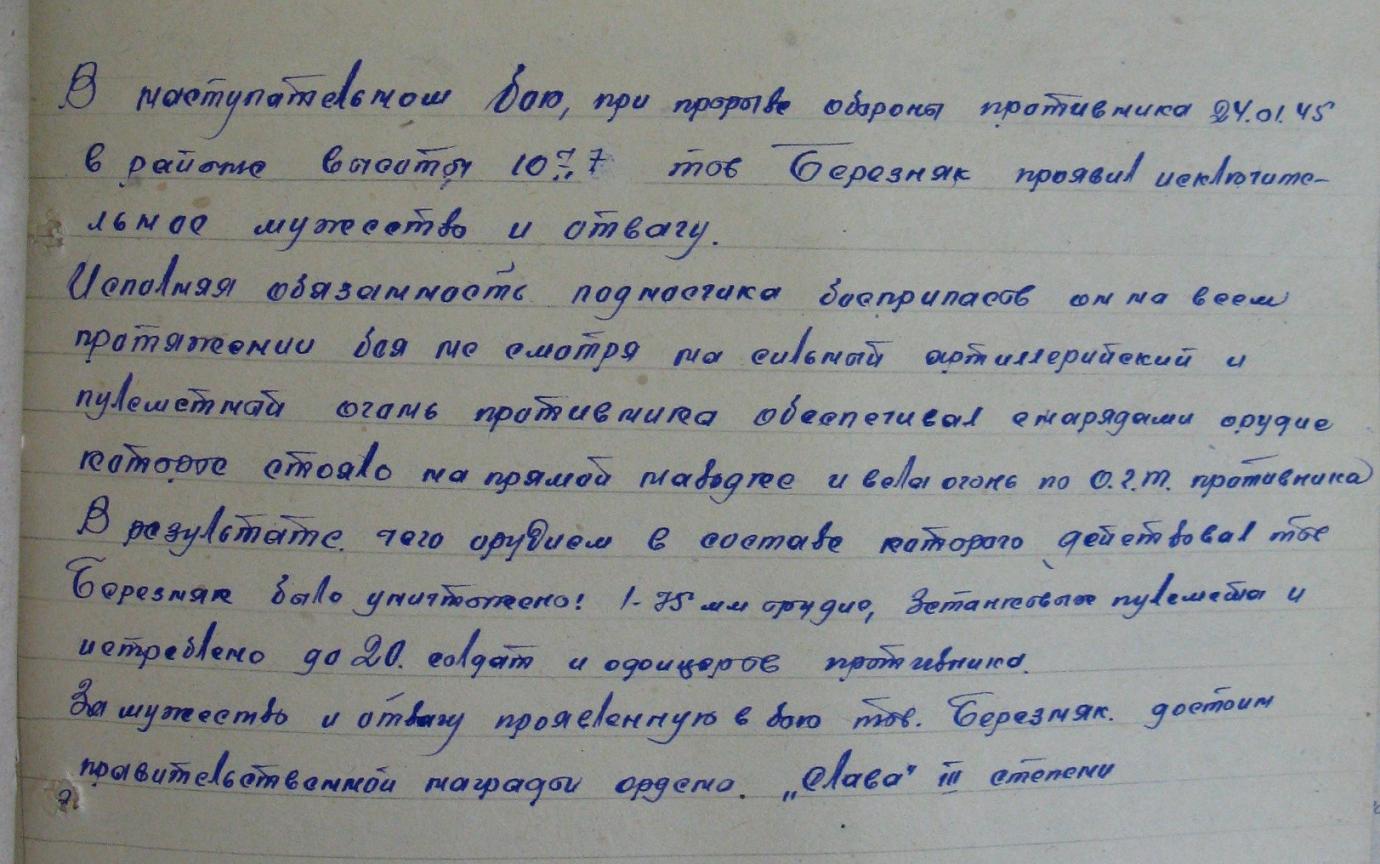 В наступательном бою, при прорыве обороны противника 24.01.45
в районе высоты 107,7 тов Березняк проявил исключите-
льное мужество и отвагу.
Исполняя обязанность подносчика боеприпасов он на всем
протяжении боя не смотря на сильный артиллерийский и
пулеметный огонь противника обеспечивал снарядами орудие
которое стояло на прямой наводке и вела огонь по О.Г.Т. противника
В результате чего орудием в составе которого действовал тов
Березняк было уничтожено: 1-75 мм орудие, 3 станковые пулемета и
истреблено до 20. солдат и офицеров противника.
За мужество и отвагу проявленную в бою тов. Березняк. достоин
правительственной награды ордена. „Слава" III степени